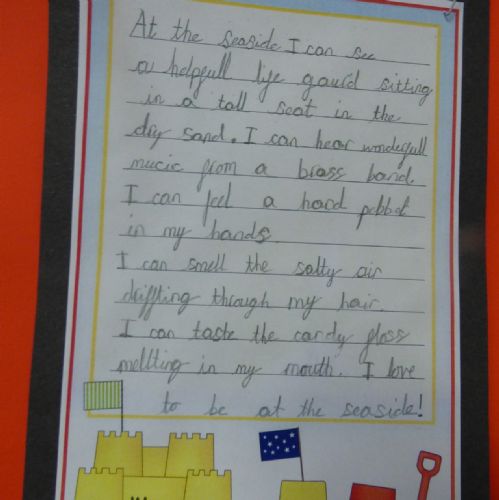 At the seaside I can see
a helpfull life gaurd sitting
in a tall seat in the
dry sand. I can hear wonderfull
music from a brass band.
I can feel a hard pebbel
in my hands.
I can smell the salty air
driffting through my hair.
I can taste the candy floss
mellting in my mouth. I love
to be at the seaside!